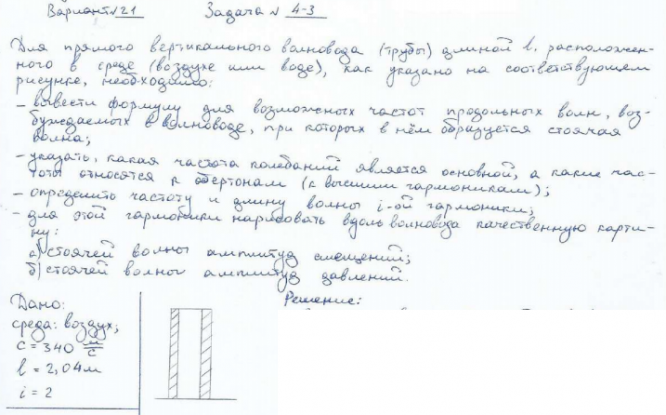 Вариант №21 Задача № 4-3
Для прямого вертикального волновода (трубы) длиной l, расположен-
ного в среде (воздухе или воде), как указано на соответствующем
рисунке, необходимо:
- вывести формулу для возможных частот продольных волн, воз-
буждаемых в волноводе, при которых в нём образуется стоячая
волна;
- указать, какая частота колебаний является основной, а какие час-
тоты относятся к обертонам (к высшим гармоникам);
- определить частоту и длину волны i-ой гармоники;
- для этой гармоники нарисовать вдоль волновода качественную карти-
ну:
а) стоячей волны амплитуд смещений;
б) стоячей волны амплитуд давлений.
Дано:
среда: воздух;
c = 340 м/с
l = 2,04 м
i = 2
Решение: